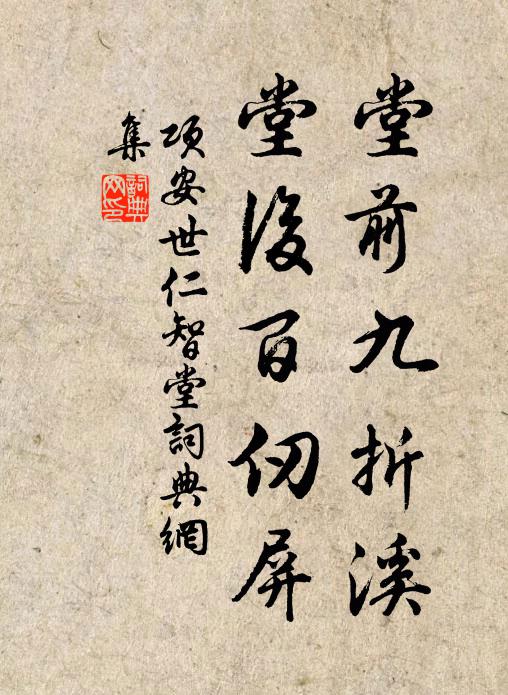 堂前九折溪
堂後百仞屏
項安世仁智堂詞典網
集
詞典
网印